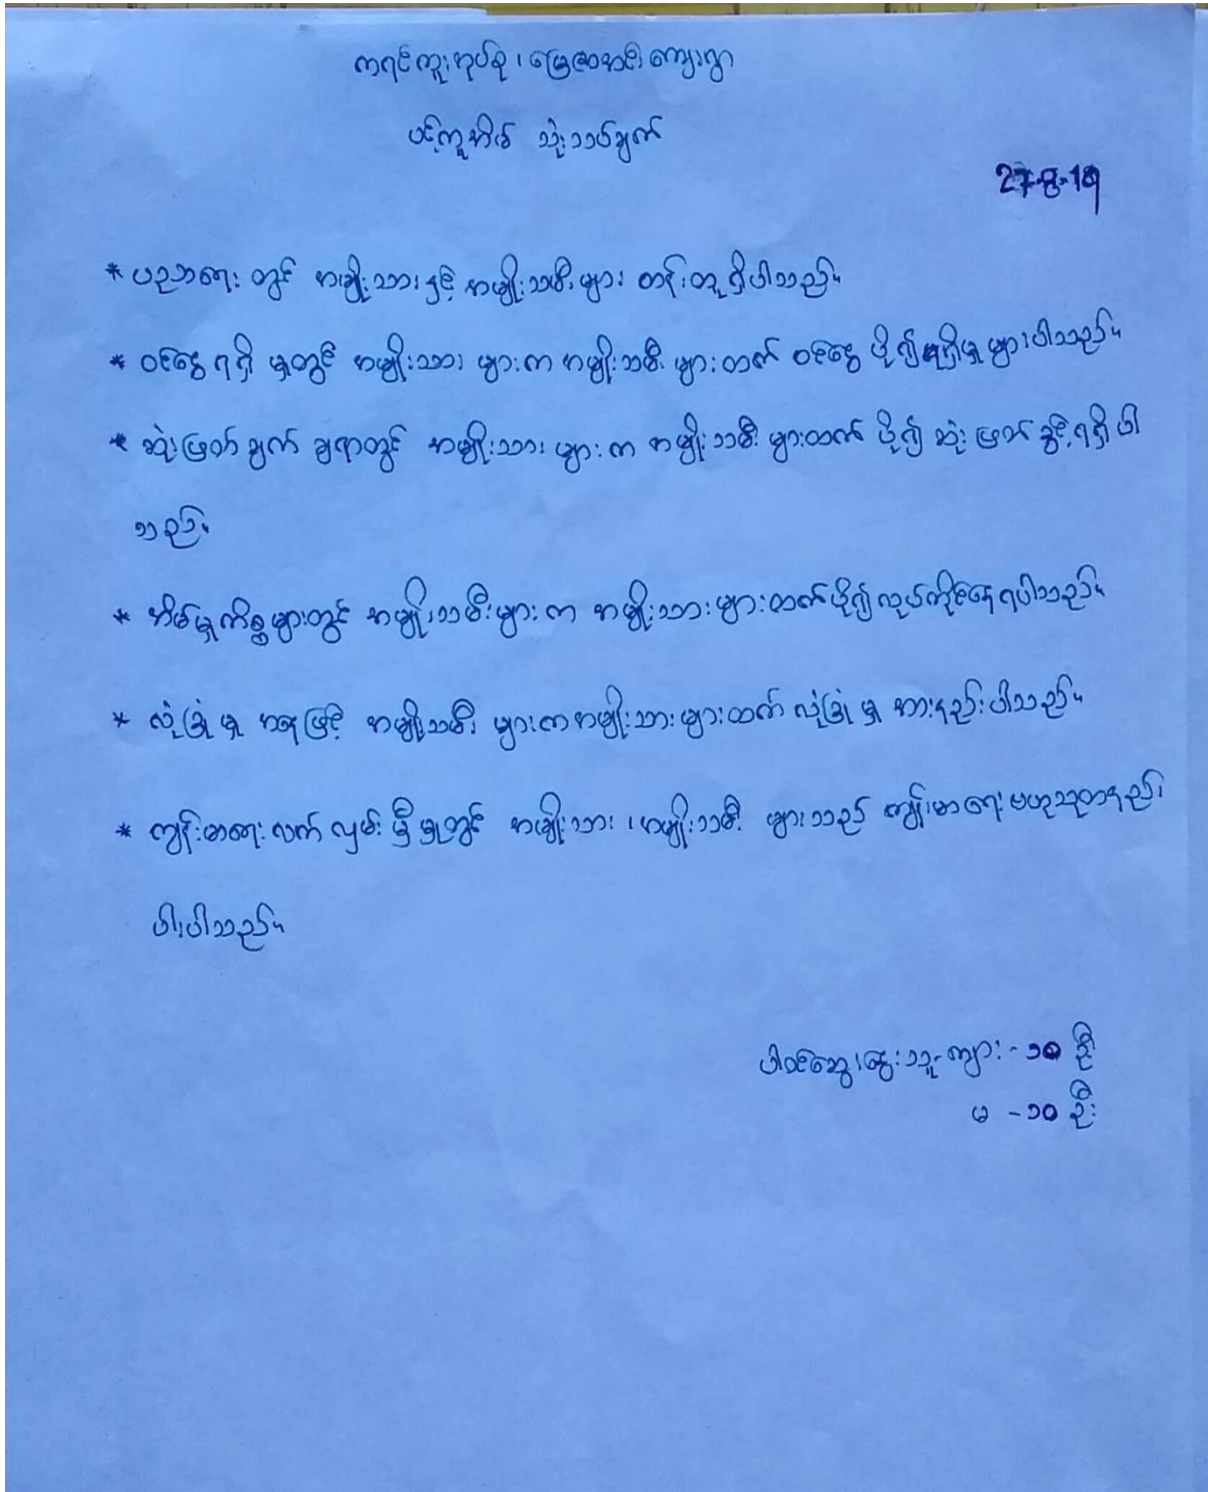 ကရင်ကူးအုပ်စု၊ မြေ ကျေးရွာ
ပင့်ကူအိမ် သုံးသပ်ချက်
27-8-19
* ပညာရေး တွင် အမျိုးသားနှင့် အမျိုးသမီးများ တန်းတူရှိပါသည်။
* ဝင်ငွေရရှိမှုတွင် အမျိုးသားများက အမျိုးသမီးများထက် ဝင်ငွေ ပို၍ရရှိမှုများပါသည်။
* ဆုံးဖြတ်ချက်ချရာတွင် အမျိုးသားများက အမျိုးသမီးများထက် ပို၍ ဆုံးဖြတ်ခွင့်ရရှိပါ
သည်။
* အိမ်မှုကိစ္စများတွင် အမျိုးသမီးများက အမျိုးသားများထက်ပို၍လုပ်ကိုင်နေရပါသည်။
* လုံခြုံမှုအနေဖြင့် အမျိုးသမီးများကအမျိုးသားများထက် လုံခြုံမှုအားနည်းပါသည်။
* ကျန်းမာရေးလက်လှမ်းမှီမှုတွင် အမျိုးသား၊အမျိုးသမီးများသည် ကျန်းမာရေးဗဟုသုတနည်း
ပါးပါသည်။
ပါဝင်ဆွေးနွေးသူ-ကျား - ၁၀ ဦး
မ - ၁၀ ဦး